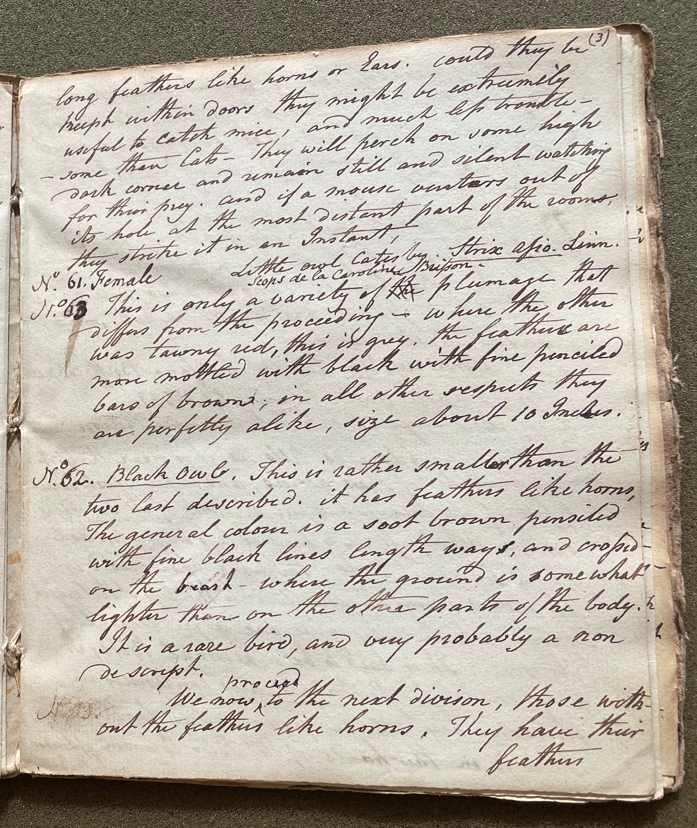 (3)
long feathers like horns or Ears. could they be
keept within doors they might be extrumely
useful to catch mice, and much less trouble-
-some than Cats - They will perch on some high
dark corner and remain still and silent watching
for their prey. and if a mouse venturs out of
its hole at the most distent part of the rooms,
they strike it in an Instant,
Little owl Catesby. Strix asio. Linn.
No. 61. Female Scops de la Caroline Brisson
No. 63 This is only a variety of plumage that
differs from the proceeding - where the other
was tawny red, this is grey. the feathers are
more mottled with black with fine penciled
bars of brown; in all other respects they
are perfettly alike, size about 10 Inches.
No. 62. Black Owl. This is rather smaller than the
two last described. it has feathers like horns,
The general colour is a soot brown pensiled
with fine black lines length ways, and crosed-
on the breast - where the ground is somewhat
lighter than on the other parts of the body.
It is a rare bird, and very probably a non
descript.
We now proceed to the next divison, those with-
out the feathers like horns. They have their
feathers